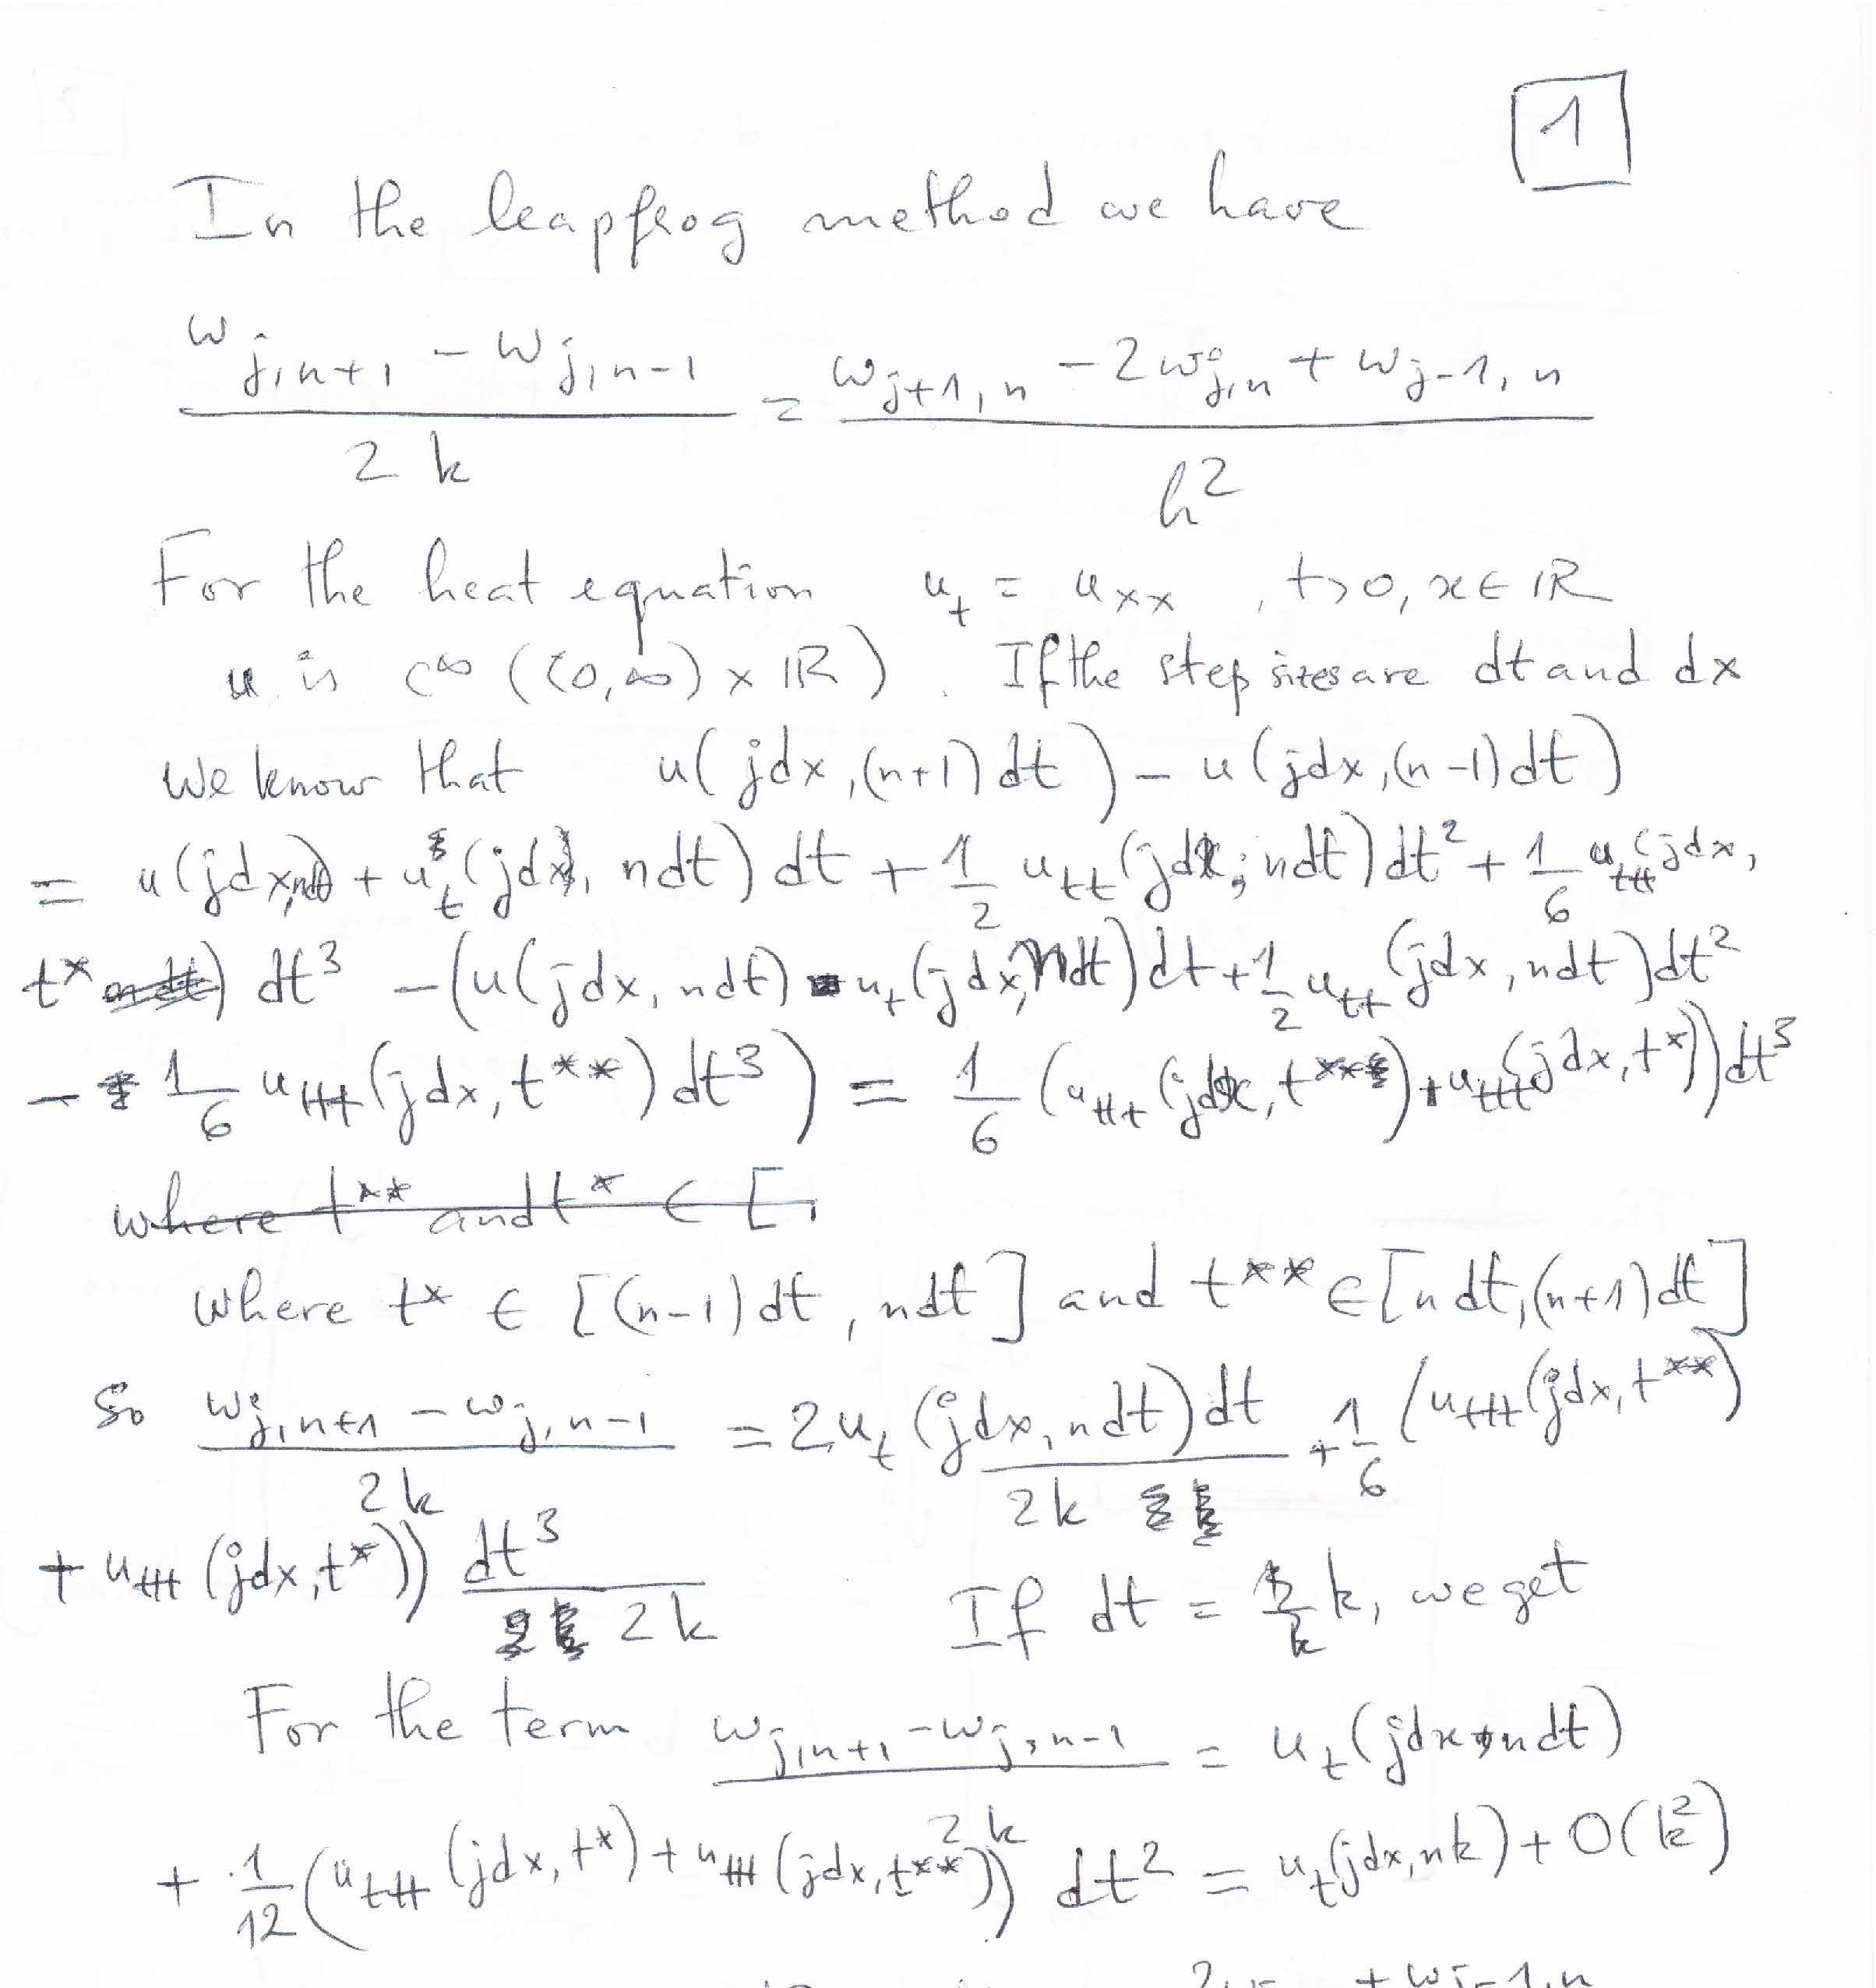 1
In the leapfrog method we have
(w_{j,n+1} - w_{j,n-1}) / (2k) = (w_{j+1,n} - 2w_{j,n} + w_{j-1,n}) / h^2
For the heat equation u_t = u_{xx}, t>0, x∈ℝ
u is C^∞((0,∞)×ℝ). If the step sizes are dt and dx
We know that u(jdx,(n+1)dt) - u(jdx,(n-1)dt)
= u(jdx,ndt) + u_t(jdx,ndt)dt + 1/2 u_{tt}(jdx,ndt)dt^2 + 1/6 u_{ttt}(jdx,
t*) dt^3 - (u(jdx,ndt) - u_t(jdx,ndt)dt + 1/2 u_{tt}(jdx,ndt)dt^2
- 1/6 u_{ttt}(jdx,t**)dt^3) = 1/6 (u_{ttt}(jdx,t**) + u_{ttt}(jdx,t*))dt^3
where t** and t* ∈ [
where t* ∈ [(n-1)dt, ndt] and t** ∈ [ndt,(n+1)dt]
So (w_{j,n+1} - w_{j,n-1}) / (2k) = 2u_t(jdx,ndt)dt / (2k) + 1/6 (u_{ttt}(jdx,t**)
+ u_{ttt}(jdx,t*)) dt^3 / (2k) If dt = k, we get
For the term (w_{j,n+1} - w_{j,n-1}) / (2k) = u_t(jdx,ndt)
+ 1/12 (u_{ttt}(jdx,t*) + u_{ttt}(jdx,t**)) dt^2 = u_t(jdx,nk) + O(k^2)
+ w_{j-1,n}